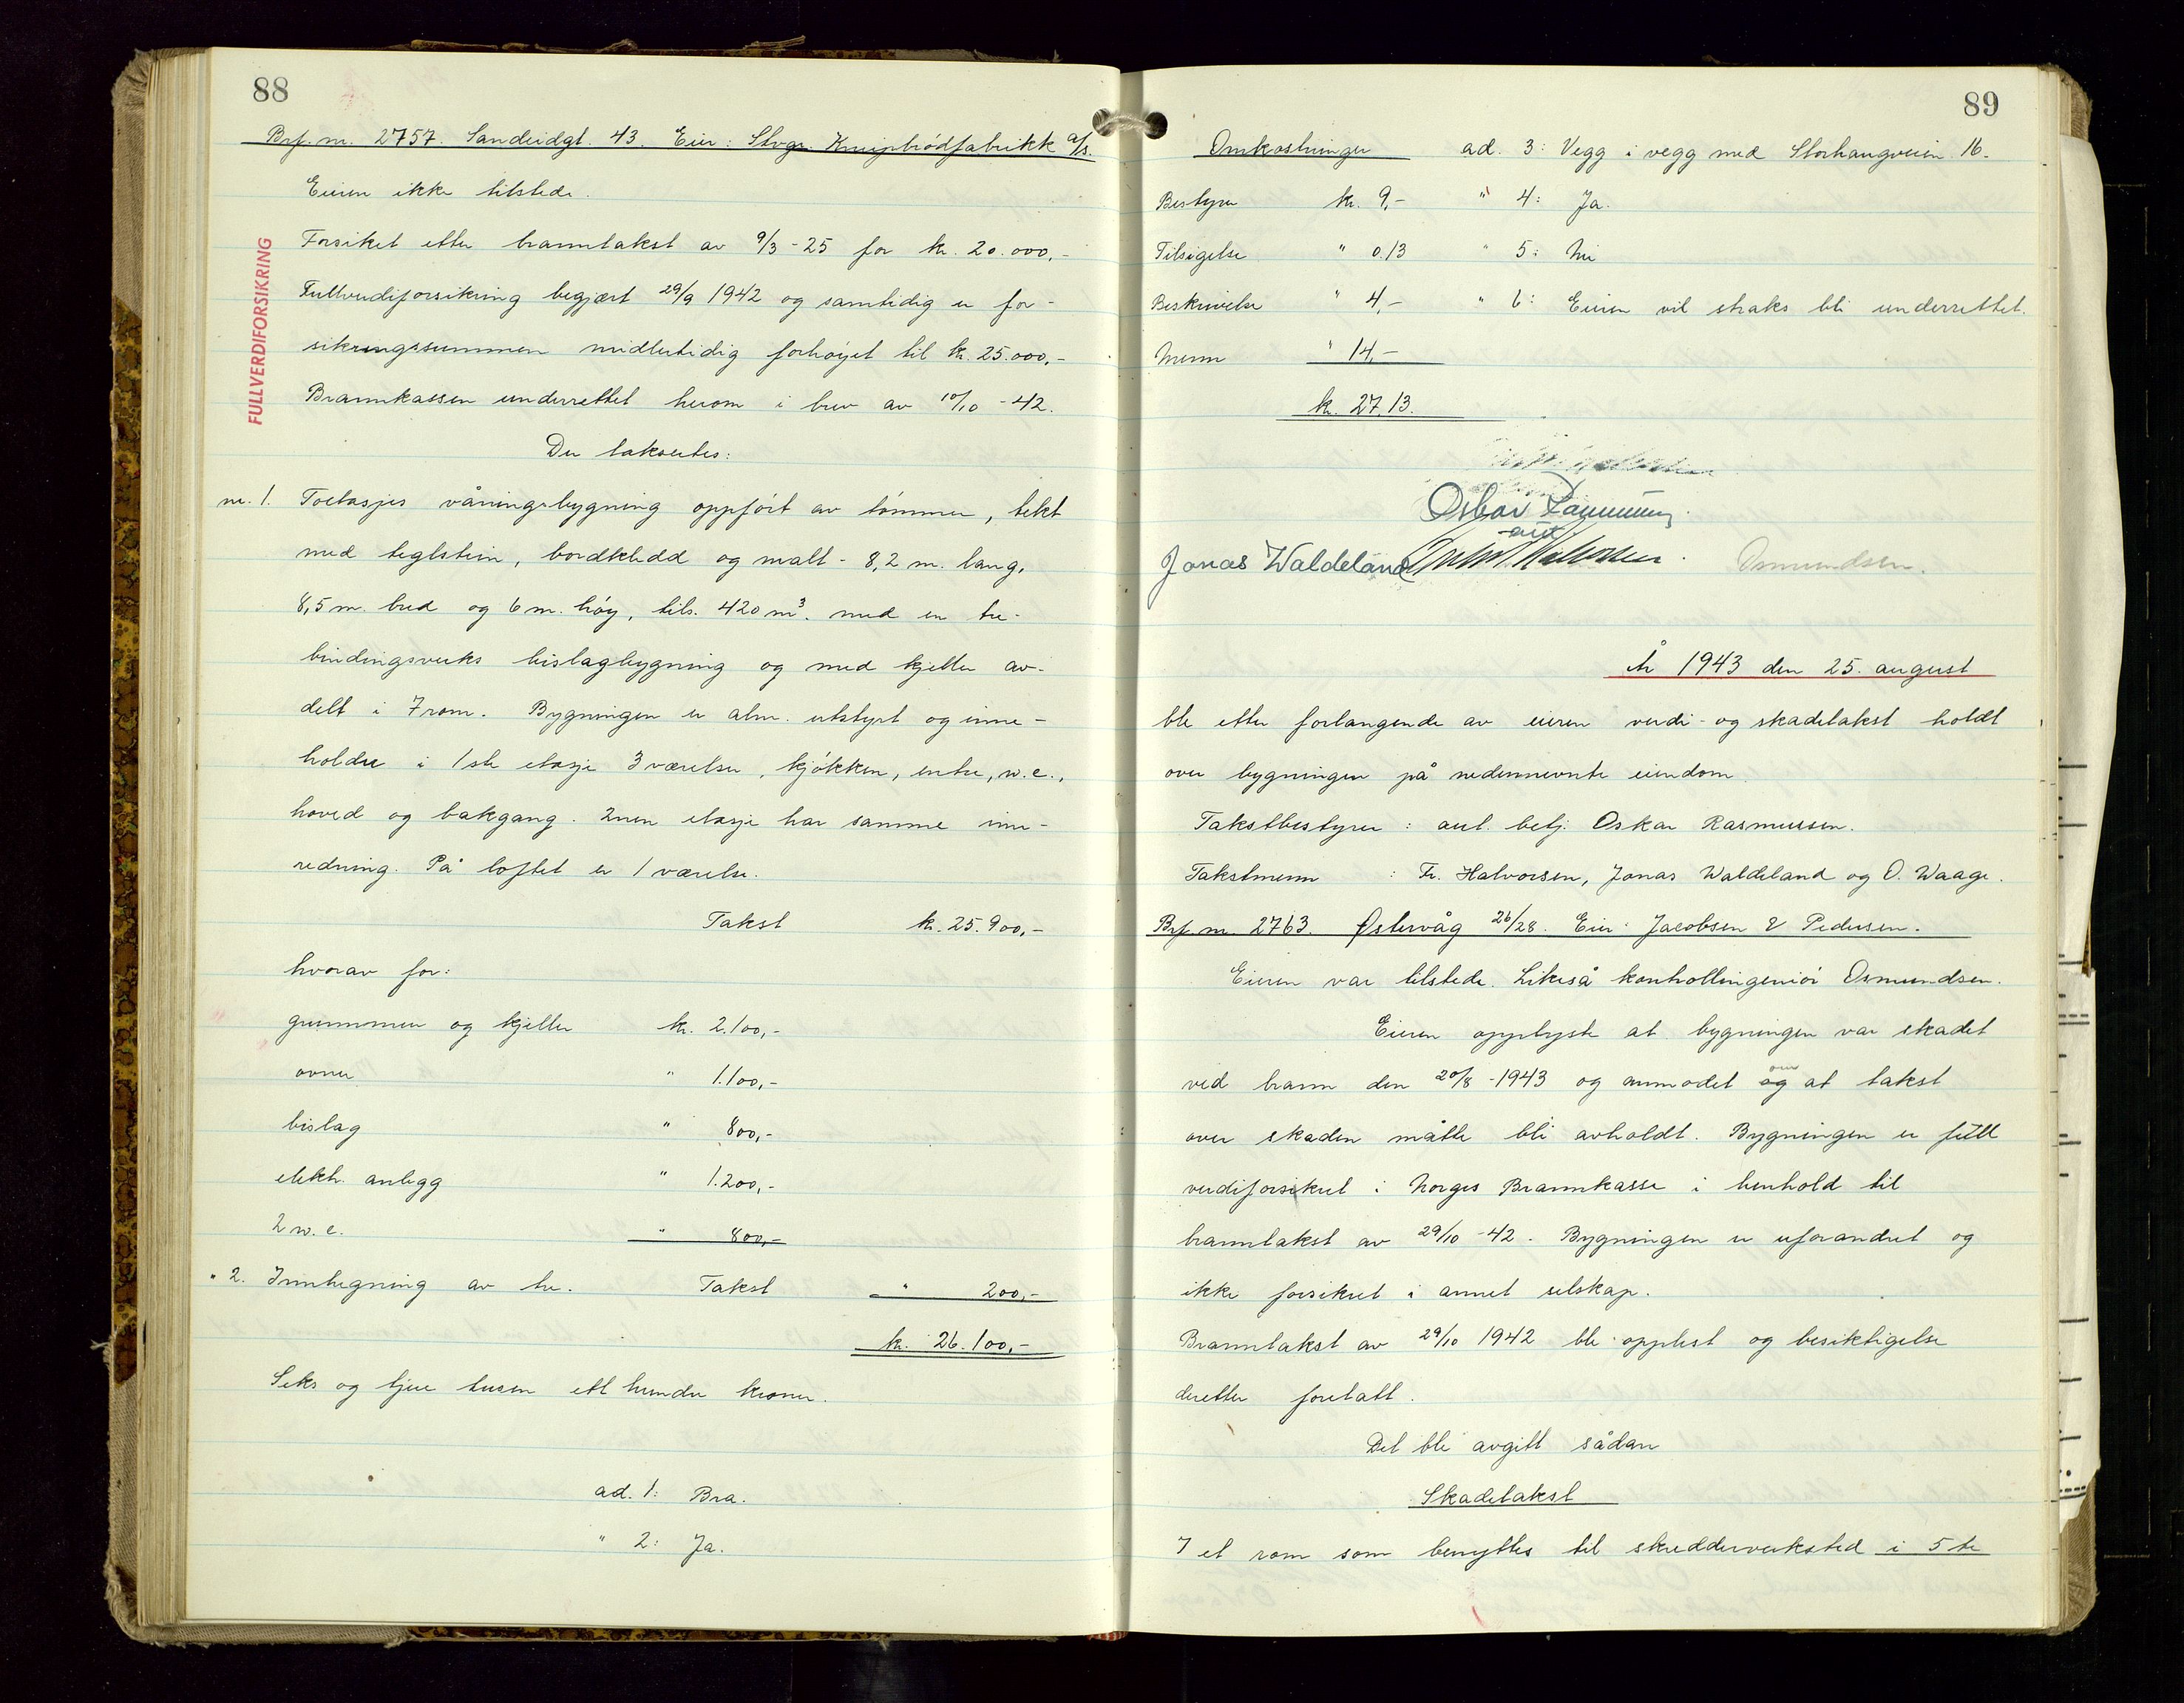 88
Brf. nr. 2757. Sandeidgt. 43. Eier: Stvgr. Knipbrødfabrikk a/s.
Eieren ikke tilstede.
FULLVERDIFORSIKRING
Forsikret etter branntakst av 9/3 - 25 for kr. 20.000,-
Fullverdiforsikring begjært 29/9 1942 og samtidig er for-
sikringssummen midlertidig forhøyet til kr. 25.000,-
Brannkassen underrettet herom i brev av 10/10 - 42.
Der takseres:
nr. 1. Toetasjes våningsbygning oppført av tømmer, tekt
med teglstein, bordkledd og malt - 8,2 m. lang,
8,5 m. bred og 6 m. høy, tils. 420 m³. med en tre-
bindingsverks bislagbygning og med kjeller av-
delt i 7 rom. Bygningen er alm. utstyrt og inne-
holder i 1ste etasje 3 værelser, kjøkken, entre, w.c.,
hoved og bakgang. 2nen etasje har samme inn-
redning. På loftet er 1 værelse.
Takst kr. 25.900,-
hvorav for:
grunnmur og kjeller kr. 2.100,-
ovner " 1.100,-
bislag " 800,-
elektr. anlegg " 1.200,-
2 w.c. " 800,-
" 2. Inntegning av tre. Takst " 200,-
kr. 26.100,-
Seks og tjue tusen ett hundre kroner.
ad. 1: Bra.
" 2: Ja.
89
Omkostninger ad. 3: Vegg i vegg med Storhaugveien 16.
Bestyrer kr. 9,- " 4: Ja.
Tilsigelse " 0.13 " 5: Nei
Beskrivelse " 4,- " 6: Eieren vil straks bli underrettet.
Menn " 14,-
kr. 27.13.
Oskar Rasmussen
aut
Jonas Waldeland Halvorsen. Osmundsen.
År 1943 den 25. august
ble etter forlangende av eieren verdi- og skadetakst holdt
over bygningen på nedennevnte eiendom
Takstbestyrer : aut. betj. Oskar Rasmussen.
Takstmenn : Fr. Halvorsen, Jonas Waldeland og O. Waage.
Brf. nr. 2763. Østervåg 26/28. Eier: Jacobsen & Pedersen.
Eieren var tilstede. Likeså kontrollingeniør Osmundsen.
Eieren opplyste at bygningen var skadet
ved brann den 20/8 - 1943 og anmodet og om at takst
over skaden måtte bli avholdt. Bygningen er full
verdiforsikret i Norges Brannkasse i henhold til
branntakst av 29/10 - 42. Bygningen er uforandret og
ikke forsikret i annet selskap.
Branntakst av 29/10 1942 ble opplest og besiktigelse
deretter foretatt.
Det ble avgitt sådan
Skadetakst
I et rom som benyttes til skredderverksted i 5te